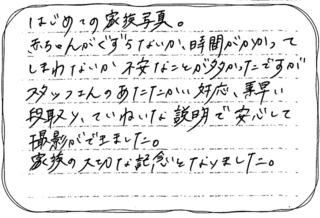 はじめての家族写真。
赤ちゃんがぐずらないか、時間がかかって
しまわないか不安なことが多かったですが
スタッフさんのあたたかい対応、素早い
段取り、ていねいな説明で安心して
撮影ができました。
家族の大切な記念となりました。